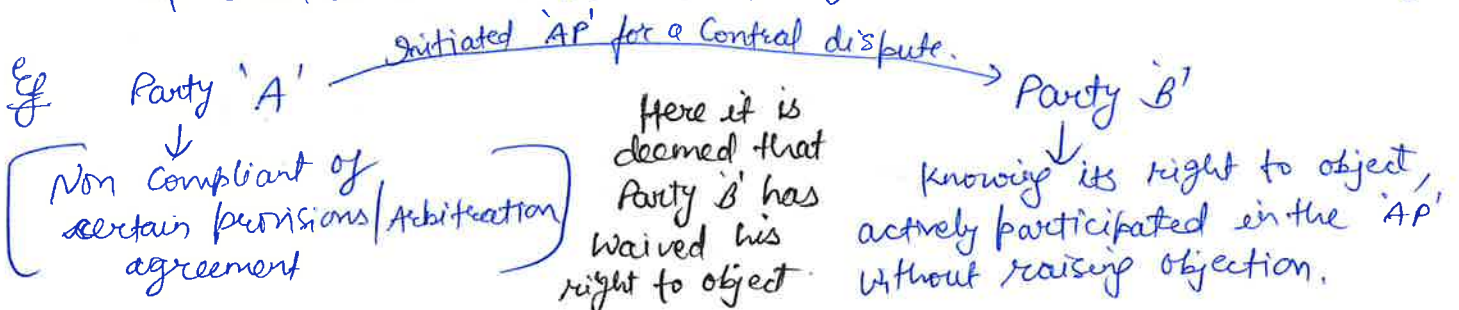 Initiated 'AP' for a Contral dispute.
Eg Party 'A'
Party 'B'
↓
Non Compliant of
certain provisions/Arbitration
agreement
Here it is
deemed that
Party 'B' has
waived his
right to object
↓
Knowing its right to object,
actively participated in the 'AP'
without raising objection.